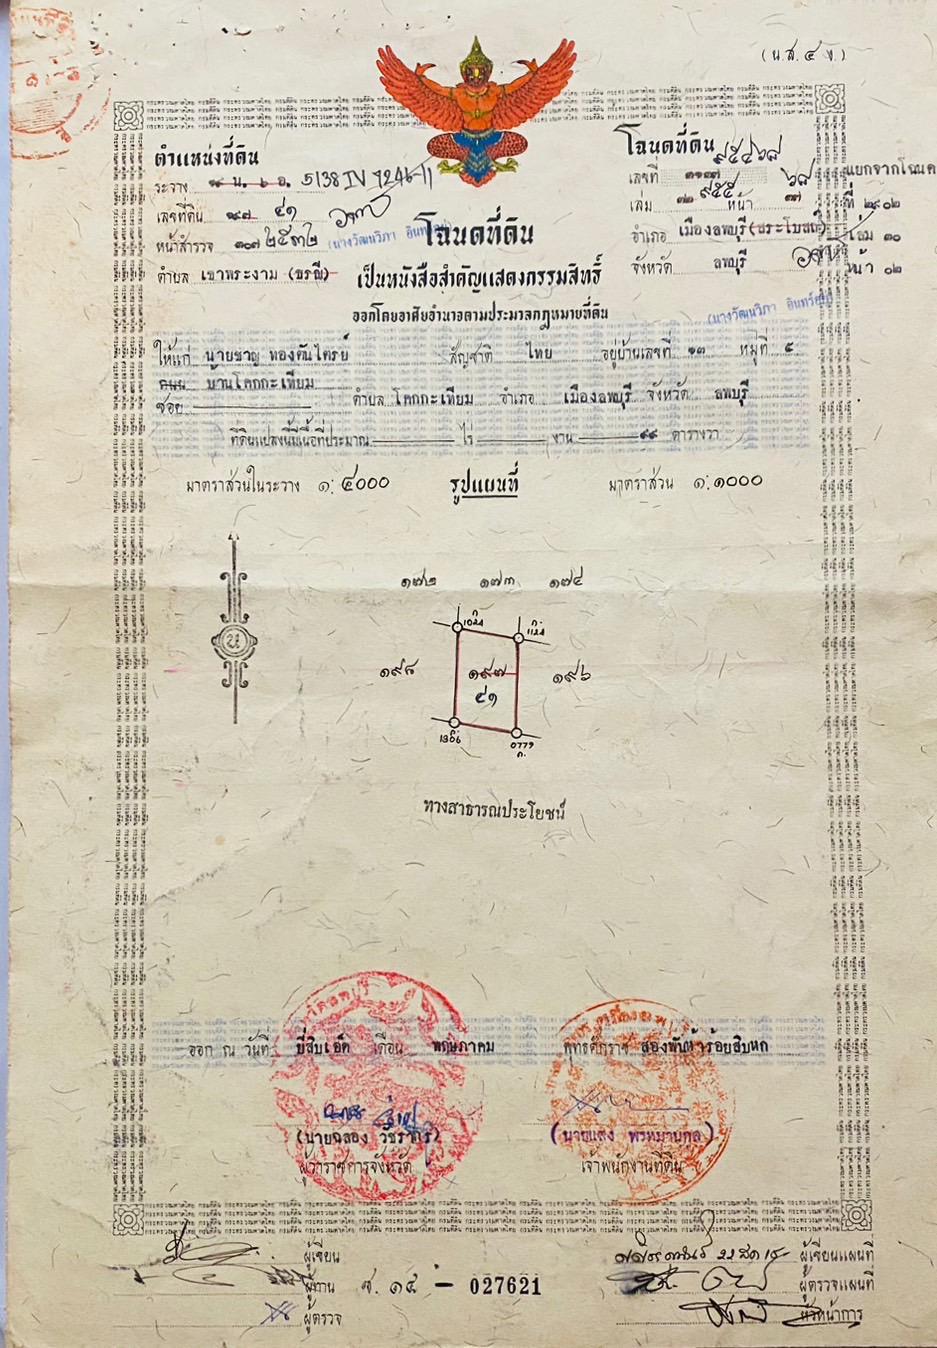 (น.ส.๔ ง.)
ตำแหน่งที่ดิน
ระวาง ๘ น. ๖ อ. 5138 IV 7246-11
เลขที่ดิน ๑๙๗ ๔๑
หน้าสำรวจ ๓๐๗ ๒๕๓๒
(นางวัฒนวิภา อินทร์
ตำบล เขาพระงาม (
โฉนดที่ดิน
เลขที่ ๙๕๔๖๘
เล่ม ๙๕๕ หน้า ๖๘
อำเภอ เมืองลพบุรี (สระโบสถ์)
จังหวัด ลพบุรี
แยกจากโฉนด
ที่ ๒๙๐๒
เล่ม ๓๐
หน้า ๐๒
โฉนดที่ดิน
เป็นหนังสือสำคัญแสดงกรรมสิทธิ์
ออกโดยอาศัยอำนาจตามประมวลกฎหมายที่ดิน
(นางวัฒนวิภา อินทร์
ให้แก่ นายชาญ สัญชาติ ไทย อยู่บ้านเลขที่ ๑๓ หมู่ที่ ๕
ถนน บ้านโคกกะเทียม
ซอย ตำบล โคกกะเทียม อำเภอ เมืองลพบุรี จังหวัด ลพบุรี
ที่ดินแปลงนี้มีเนื้อที่ประมาณ ไร่ งาน ตารางวา
มาตราส่วนในระวาง ๑:๔๐๐๐ รูปแผนที่ มาตราส่วน ๑:๑๐๐๐
๑๗๒ ๑๗๓ ๑๗๔
ก 1024
ก 1124
๑๙๘ ๑๙๗ ๑๙๖
๔๑
ก 1306
0779 ก.
ทางสาธารณประโยชน์
ออก ณ วันที่ ยี่สิบเอ็ด เดือน พฤษภาคม พุทธศักราช สองพันห้าร้อยสิบหก
(นายฉลอง วัชรากร) (นายแสง พรหมานุกูล)
ผู้ว่าราชการจังหวัด เจ้าพนักงานที่ดิน
ผู้เขียน ผู้เขียนแผนที่
ผู้ทาน จ. ๑๔ - 027621 ผู้ตรวจแผนที่
ผู้ตรวจ หัวหน้าการ